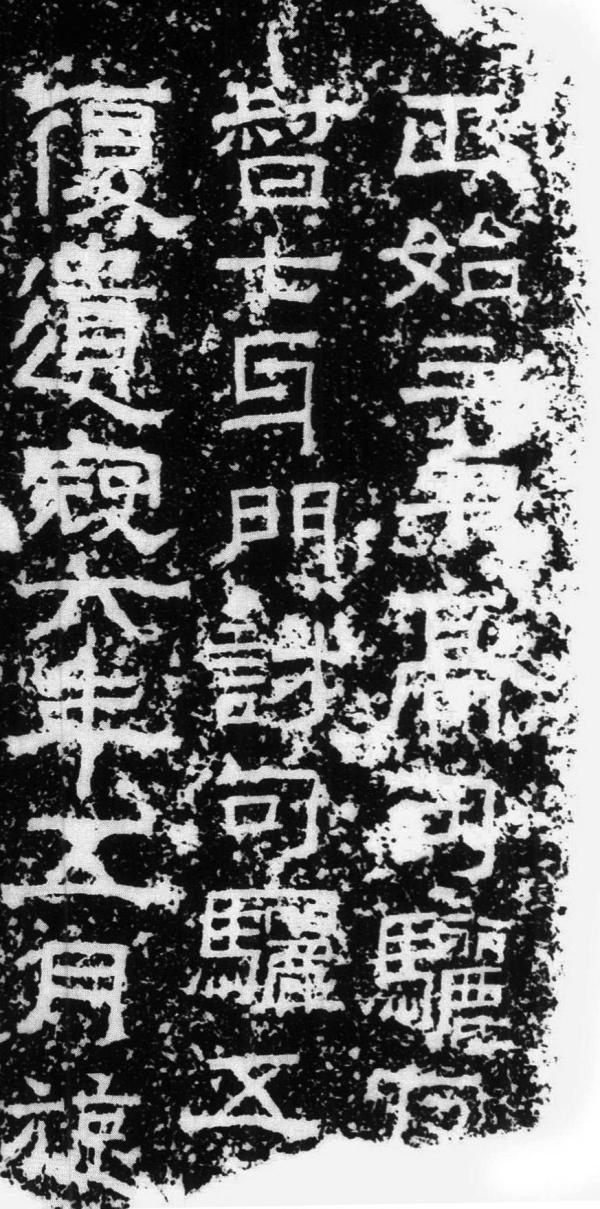 正始三年高句驪
督七牙門討句驪五
復遺寇六年五月旋